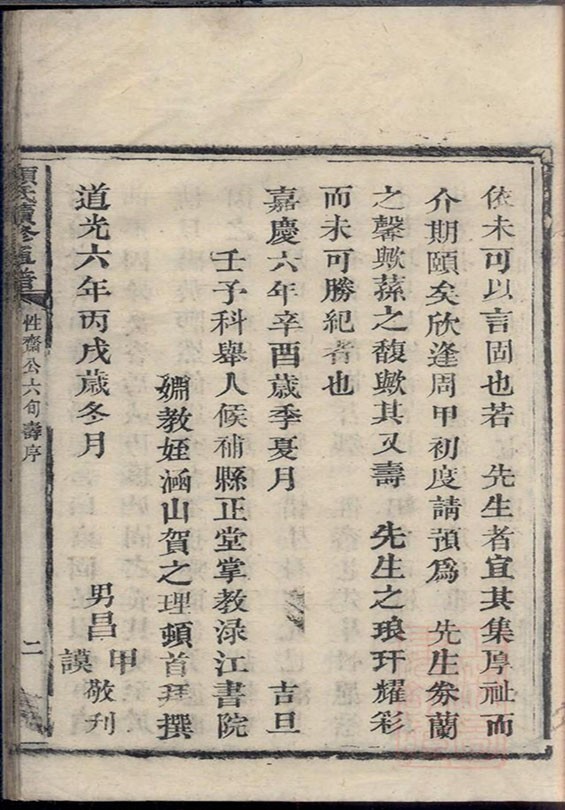 依未可以言固也若　先生者宜其集厚祉而
介期頤矣欣逢周甲初度請預為　先生劵蘭
之馨歟蓀之馥歟其又壽　先生之琅玕耀彩
而未可勝紀者也
嘉慶六年辛酉歲季夏月　吉旦
壬子科舉人候補縣正堂掌教淥江書院
婣教姪涵山賀之理頓首拜撰
道光六年丙戌歲冬月
男昌甲謨敬刊
氏續修
性齋公六旬壽序
二